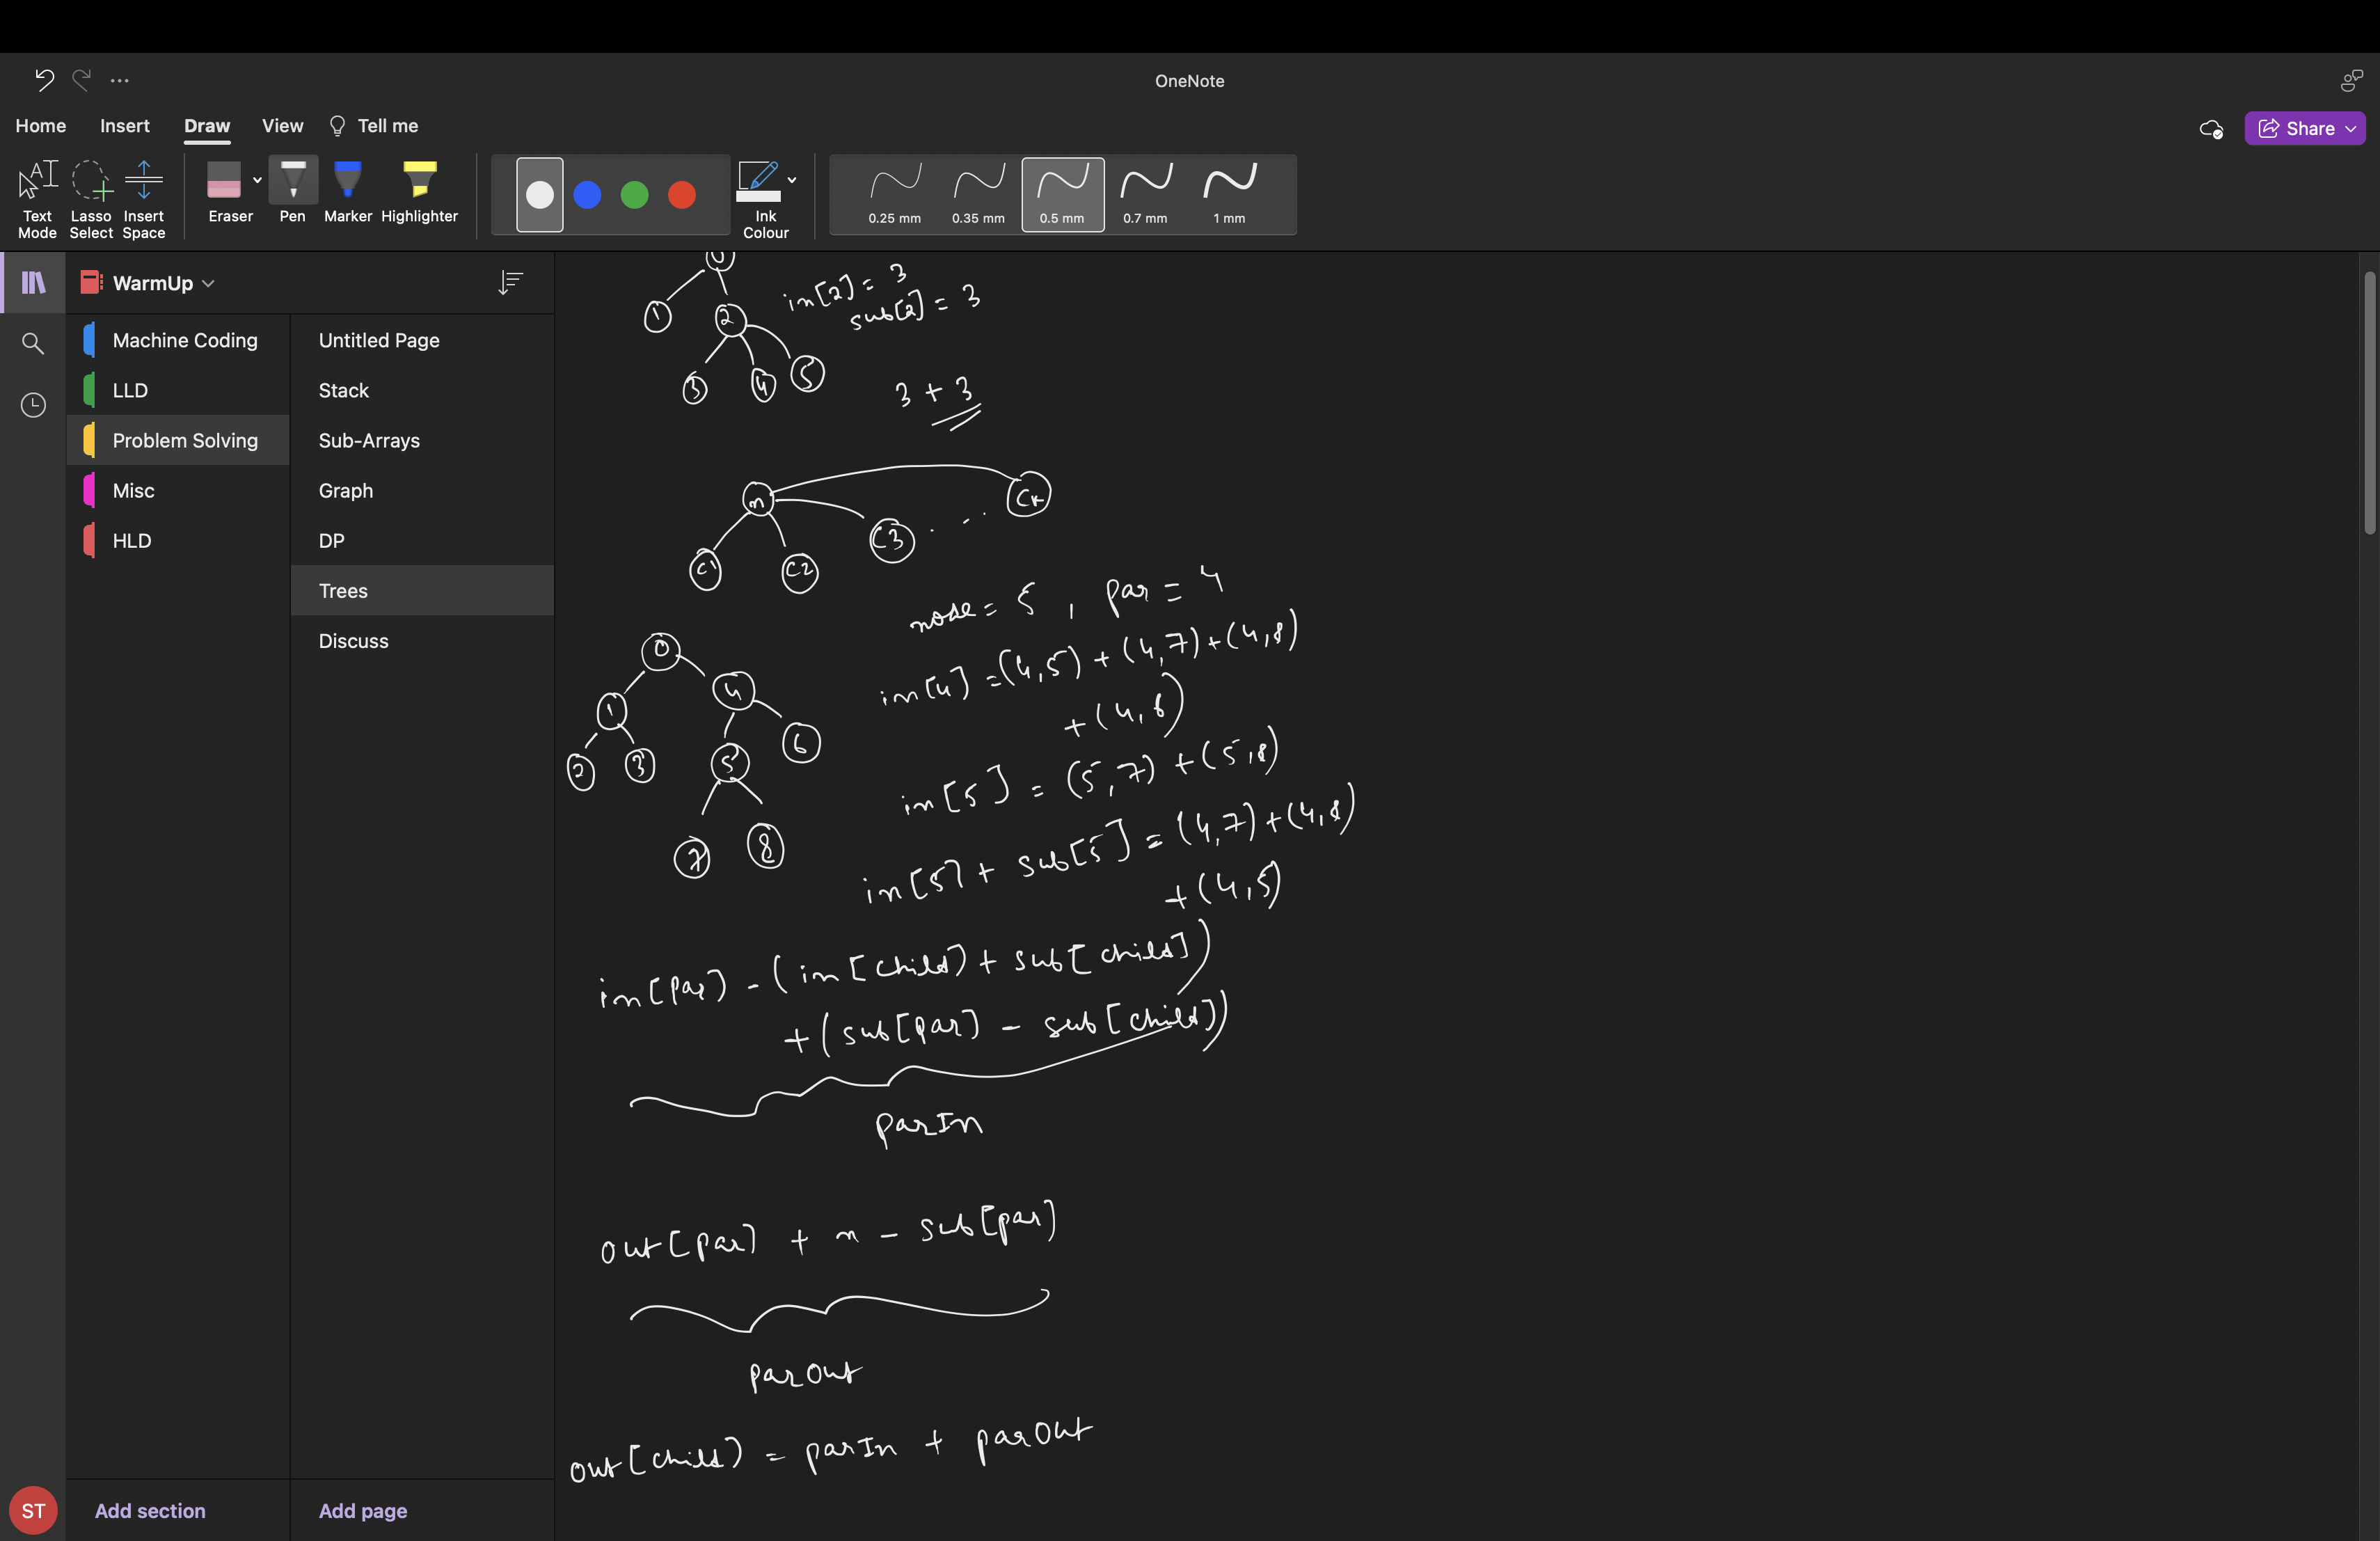 OneNote
Home Insert Draw View Tell me
Share
Text Mode
Lasso Select
Insert Space
Eraser
Pen
Marker
Highlighter
Ink Colour
0.25 mm
0.35 mm
0.5 mm
0.7 mm
1 mm
WarmUp
Machine Coding
LLD
Problem Solving
Misc
HLD
Untitled Page
Stack
Sub-Arrays
Graph
DP
Trees
Discuss
Add section
Add page
ST
0
1 2
3 4 5
in[2] = 3
sub[2] = 3
3 + 3
n
C1 C2 C3 ... CK
0
1 4
2 3 5 6
7 8
node = 5 , par = 4
in[4] = (4,5) + (4,7) + (4,8)
+ (4,6)
in[5] = (5,7) + (5,8)
in[5] + sub[5] = (4,7) + (4,8)
+ (4,5)
in[par] - (in[child] + sub[child])
+ (sub[par] - sub[child])
parIn
out[par] + n - sub[par]
parOut
out[child] = parIn + parOut